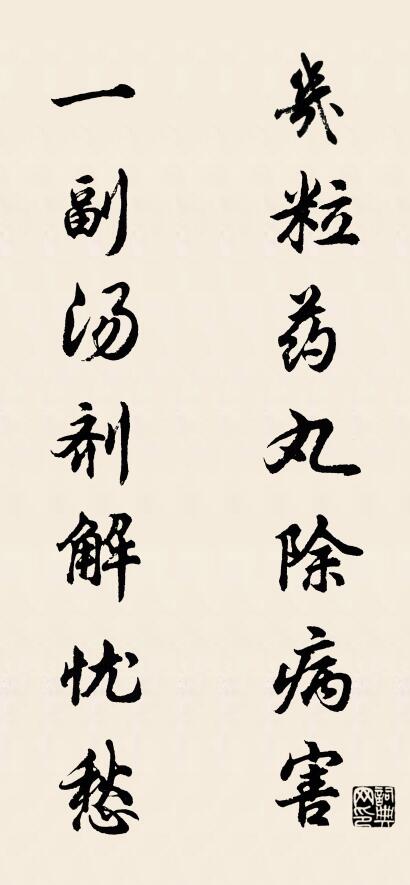 幾粒药丸除病害
一副汤剂解忧愁
詞典网印